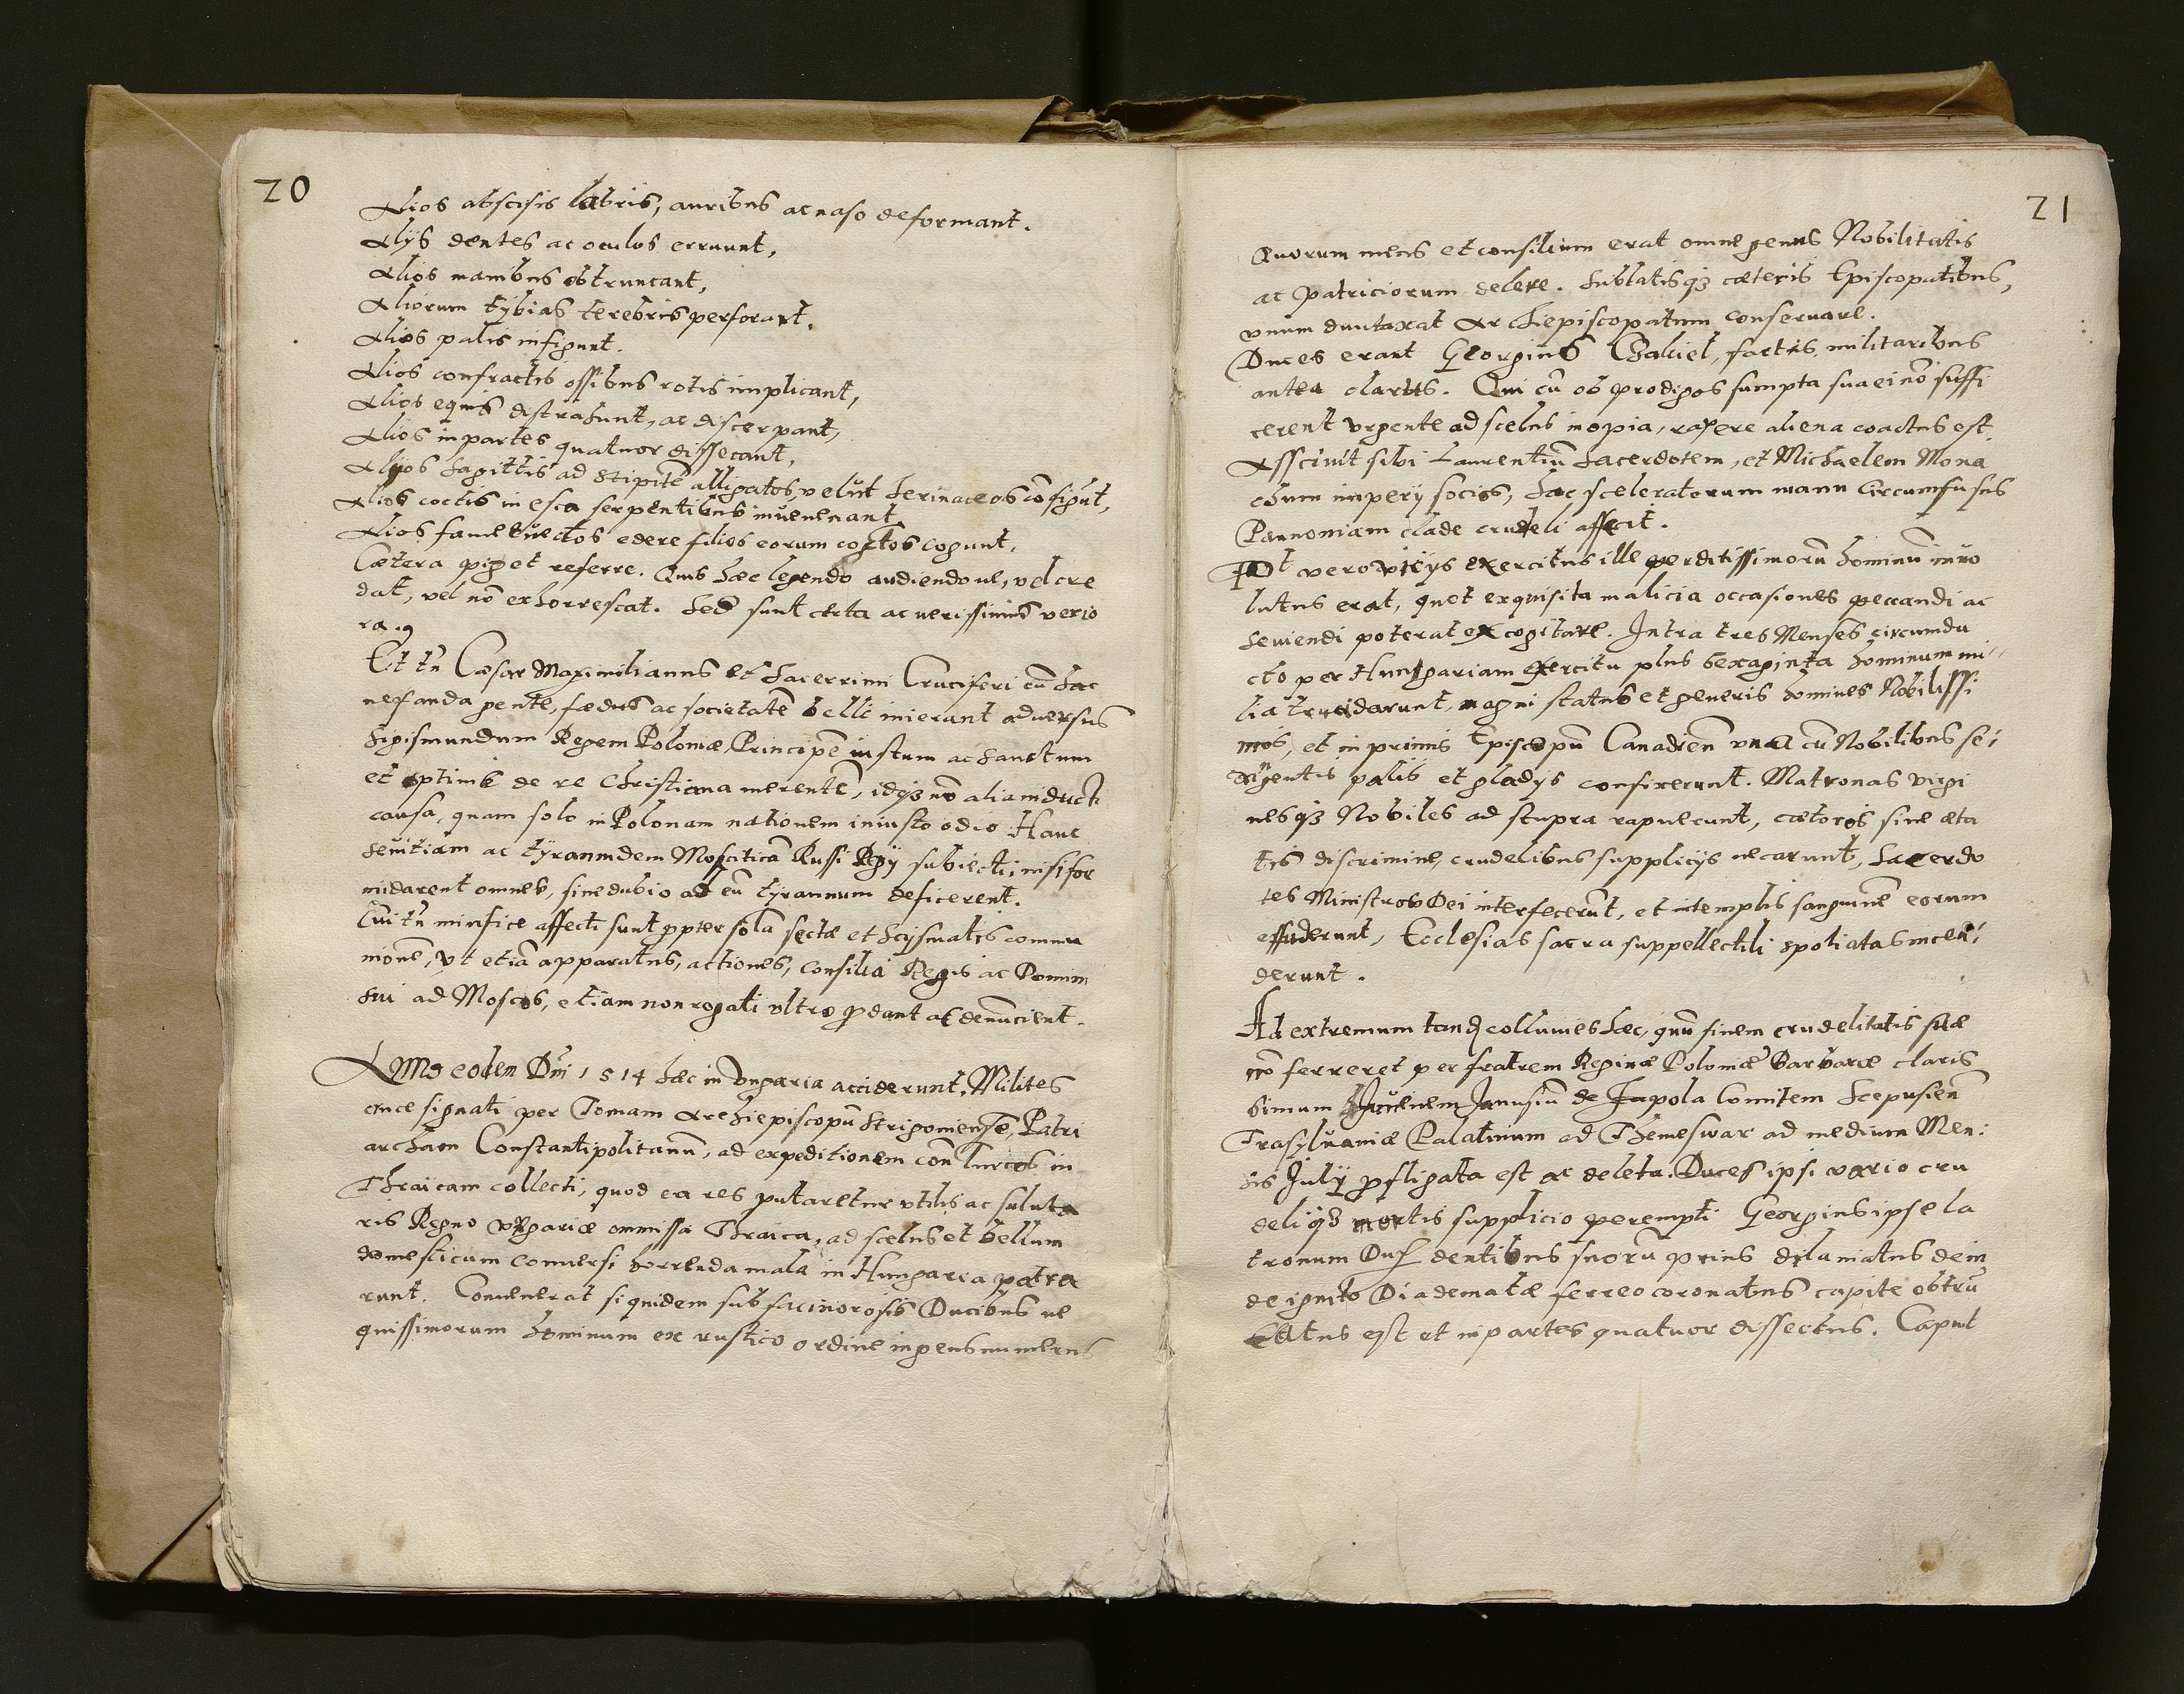 20
Alios abscisis labris, auribus ac naso deformant.
Alijs dentes ac oculos erruunt,
Alios manibus obtruncant,
Aliorum tybias terebris perforant.
Alios palis infigunt.
Alios confractis ossibus rotis implicant,
Alios equis distrahunt, ac discerpant,
Alios in partes quatuor dissecant,
Alios sagittis ad stipitē alligatos, velut herinaceos cōfigūt,
Alios coctis in esca serpentibus invenenant
Alios fame edere filios eorum coctos cogunt,
Cætera piget referre. Quis hæc legendo audiendo ue, vel cre
dat, vel nō exhorrescat. Sed sunt certa ac uerissimis verio
ra.
Et tn̄ Cæsar Maximilianus et Sacerrimi Cruciferi cū hac
nefanda gente, fœdus ac societatē belli inierant adversus
Sigismundum Regem Poloniæ, Principē iustum ac sanctum
et optimè de re Christiana merentē, idqꝫ nō alia inducti
causa, quam solo in Polonam nationem iniusto odio. Hanc
sevitiam ac tyrannidem Mosciticā Russi Regij subiecti, nisi for
midarent omnes, sine dubio ad eū tyrannum deficerent.
Cui tn̄ mirifice affecti sunt ꝓpter solā sectæ et Scysmatis commu
nionē, vt etiā apparatus, actiones, consilia Regis ac Domini
sui ad Moscos, etiam non rogati ultro ꝓdant ac denūcient.
Anno eodem Dn̄i 1514 hæc in Vngaria acciderunt. Milites
cruce signati per Tomam Archiepiscopū Strigoniensē, Patri
archam Constantipolitanū, ad expeditionem con̄ Turcos in
Thraicam collecti, quod ea res putaretur vtilis ac saluta
ris Regno vngariæ ommissa Thraica, ad scelus et bellum
domesticum conuersi horrenda mala in Hungaria patra
runt. Conuenerat siquidem sub facinorosis Ducibus ne
quissimorum hominum ex rustico ordine ingens numerus
21
Quorum mens et consilium erat omne genus Nobilitatis
ac Patriciorum delere. Sublatisqꝫ cæteris Episcopatibus,
vnum duntaxat Archiepiscopatum conseruare.
Duces erant Georgius Thaliel, factis militaribus
antea clarus. Qui cū ob prodigos sumpta sua ei nō suffi
cerent vrgente ad scelus inopia, rapere aliena coactus est.
Asscivit sibi Laurentiū Sacerdotem, et Michaelem Mona
chum imperij socios, hac sceleratorum manu Circumfusus
Pannoniam clade crudeli affecit.
Tot vero vicijs exercitus ille perditissimorū hominū invo
lutus erat, quot exquisita malicia occasiones peccandi ac
seviendi poterat excogitare. Intra tres Menses circumdu
cto per Hungariam exercitu plus sexaginta hominum mi-
lia trucidarunt, magni status et generis homines Nobilissi
mos, et in primis Episcopū Canadien̄ vna cū Nobilibus se:
dingentis palis et gladys confixerunt. Matronas virgi
nesqꝫ Nobiles ad stupra rapuerunt, cæteros sine æta
tis discrimine, crudelibus supplicijs necarunt, Sacerdo
tes Ministros Dei interfecerūt, et in templis sanguinē eorum
effuderunt, Ecclesias sacra suppellectili spoliatas incen:
derunt.
Ad extremum tandē colluuies hæc, quū finem crudelitatis suæ
nō ferreret per fratrem Reginæ Poloniæ Barbaræ claris
simum Juuenem Janusiū de Japola Comitem Scepusien̄
Trasylvaniæ Palatinum ad Themeswar ad medium Men:
sis July ꝓfligata est ac deleta. Duces ipsi vario cru
deliqꝫ mortis supplicio perempti Georgius ipse la
tronum Dux dentibus suorū prius dilaniatus dein
de ignito Diadematæ ferreo coronatus capite obtrū
catus est et in partes quatuor dissectus. Caput